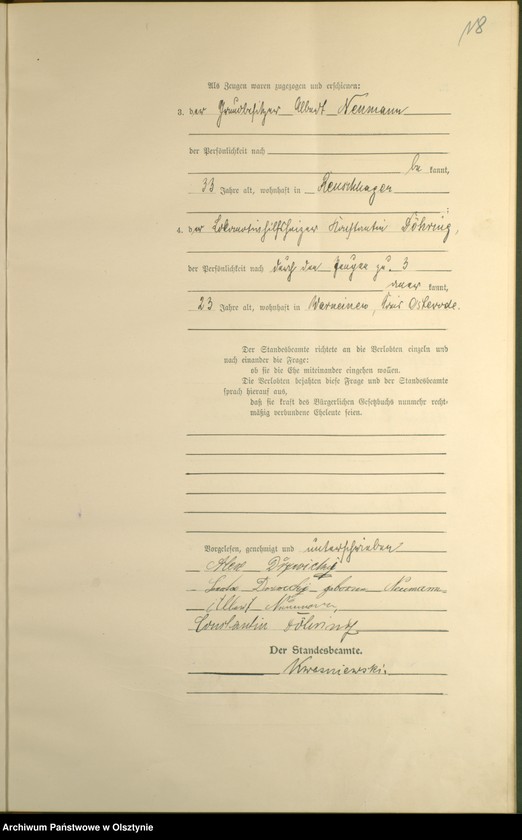 118
Als Zeugen waren zugezogen und erschienen:
3. der Grundbesitzer Albert Neumann
der Persönlichkeit nach
be kannt,
33 Jahre alt, wohnhaft in Reuschhagen
4. der Lokomotivhilfsheizer Konstantin Döhring,
der Persönlichkeit nach durch den Zeugen zu 3
aner kannt,
23 Jahre alt, wohnhaft in Warneinen, Kreis Osterode.
Der Standesbeamte richtete an die Verlobten einzeln und
nach einander die Frage:
ob sie die Ehe miteinander eingehen wollen.
Die Verlobten bejahten diese Frage und der Standesbeamte
sprach hierauf aus,
daß sie kraft des Bürgerlichen Gesetzbuchs nunmehr recht-
mäßig verbundene Eheleute seien.
Vorgelesen, genehmigt und unterschrieben
geborene Neumann
Albert Neumann
Constantin Döhring
Der Standesbeamte.
Kwasniewski.
Archiwum Państwowe w Olsztynie